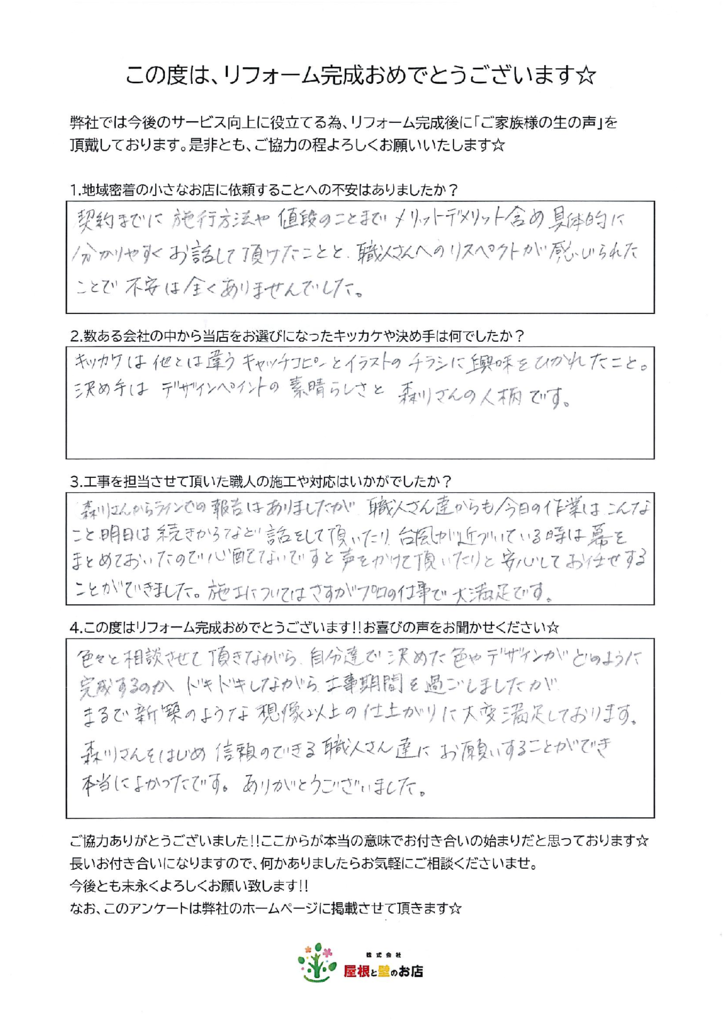 この度は、リフォーム完成おめでとうございます☆
弊社では今後のサービス向上に役立てる為、リフォーム完成後に「ご家族様の生の声」を
頂戴しております。是非とも、ご協力の程よろしくお願いいたします☆
1.地域密着の小さなお店に依頼することへの不安はありましたか?
契約までに 施行方法や 値段のことまで メリットデメリット含め 具体的に
分かりやすく お話して頂けたことと、職人さんへのリスペクトが感じられた
ことで 不安は全くありませんでした。
2.数ある会社の中から当店をお選びになったキッカケや決め手は何でしたか?
キッカケは 他とは違う キャッチコピーとイラストの チラシに興味をひかれたこと。
決め手は デザインペイントの 素晴らしさと 森川さんの人柄です。
3.工事を担当させて頂いた職人の施工や対応はいかがでしたか?
森川さんからラインでの報告はありましたが 職人さん達からも今日の作業は こんな
こと 明日は 続きからなど 話をして頂いたり 台風が近づいている時は 幕を
まとめておいたので心配てないですと声をかけて頂いたりと 安心してお任せする
ことができました。施工については さすがプロの仕事で 大満足です。
4.この度はリフォーム完成おめでとうございます!!お喜びの声をお聞かせください☆
色々と相談させて 頂きながら、自分達で 決めた色やデザインが どのように
完成するのか ドキドキしながら 工事期間を過ごしましたが
まるで 新築のような 想像以上の仕上がりに大変満足しております。
森川さんをはじめ 信頼のできる 職人さん達に お願いすることができ
本当によかったです。ありがとうございました。
ご協力ありがとうございました!!ここからが本当の意味でお付き合いの始まりだと思っております☆
長いお付き合いになりますので、何かありましたらお気軽にご相談くださいませ。
今後とも末永くよろしくお願い致します!!
なお、このアンケートは弊社のホームページに掲載させて頂きます☆
株式会社
屋根と壁のお店